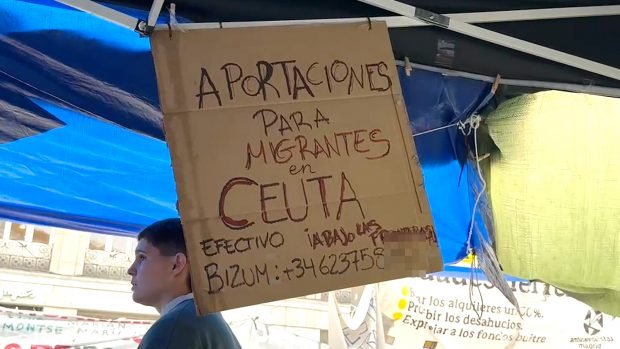 APORTACIONES
PARA
MIGRANTES
en
CEUTA
EFECTIVO ¡ABAJO LAS FRONTERAS!
BIZUM: +34 623758
bar los alquileres un 50%
Prohibir los desahucios.
Expropiar a los fondos buitre
MONTSE MARÍN